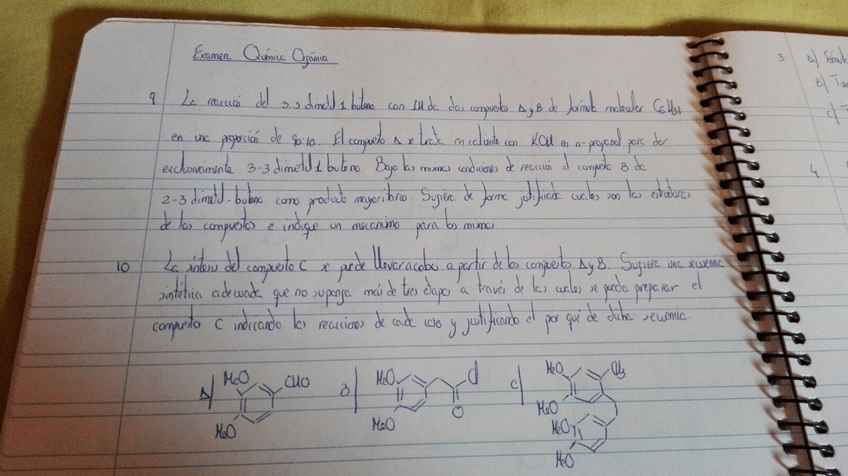 Examen Química Orgánica
9 La reacción del 3.3 dimetil 1 buteno con IH da dos compuestos A y B de fórmula molecular C6H13I
en una proporción de 90:10. El compuesto A se trata en caliente con KOH en n-propanol para dar
exclusivamente 3-3 dimetil 1 buteno. Bajo las mismas condiciones de reacción el compuesto B da
2-3 dimetil-buteno como producto mayoritario. Sugiere de forma justificada cuales son las estructuras
de los compuestos e indique un mecanismo para los mismos
10 La síntesis del compuesto C se puede llevar a cabo a partir de los compuestos A y B. Sugiere una secuencia
sintética adecuada que no suponga más de tres etapas a través de las cuales se pueda preparar el
compuesto C indicando las reacciones de cada caso y justificando el por qué de dicha secuencia.
A) MeO CHO MeO
B) MeO Cl O MeO
C) MeO CH3 MeO MeO MeO
3 a)
b)
c)
4